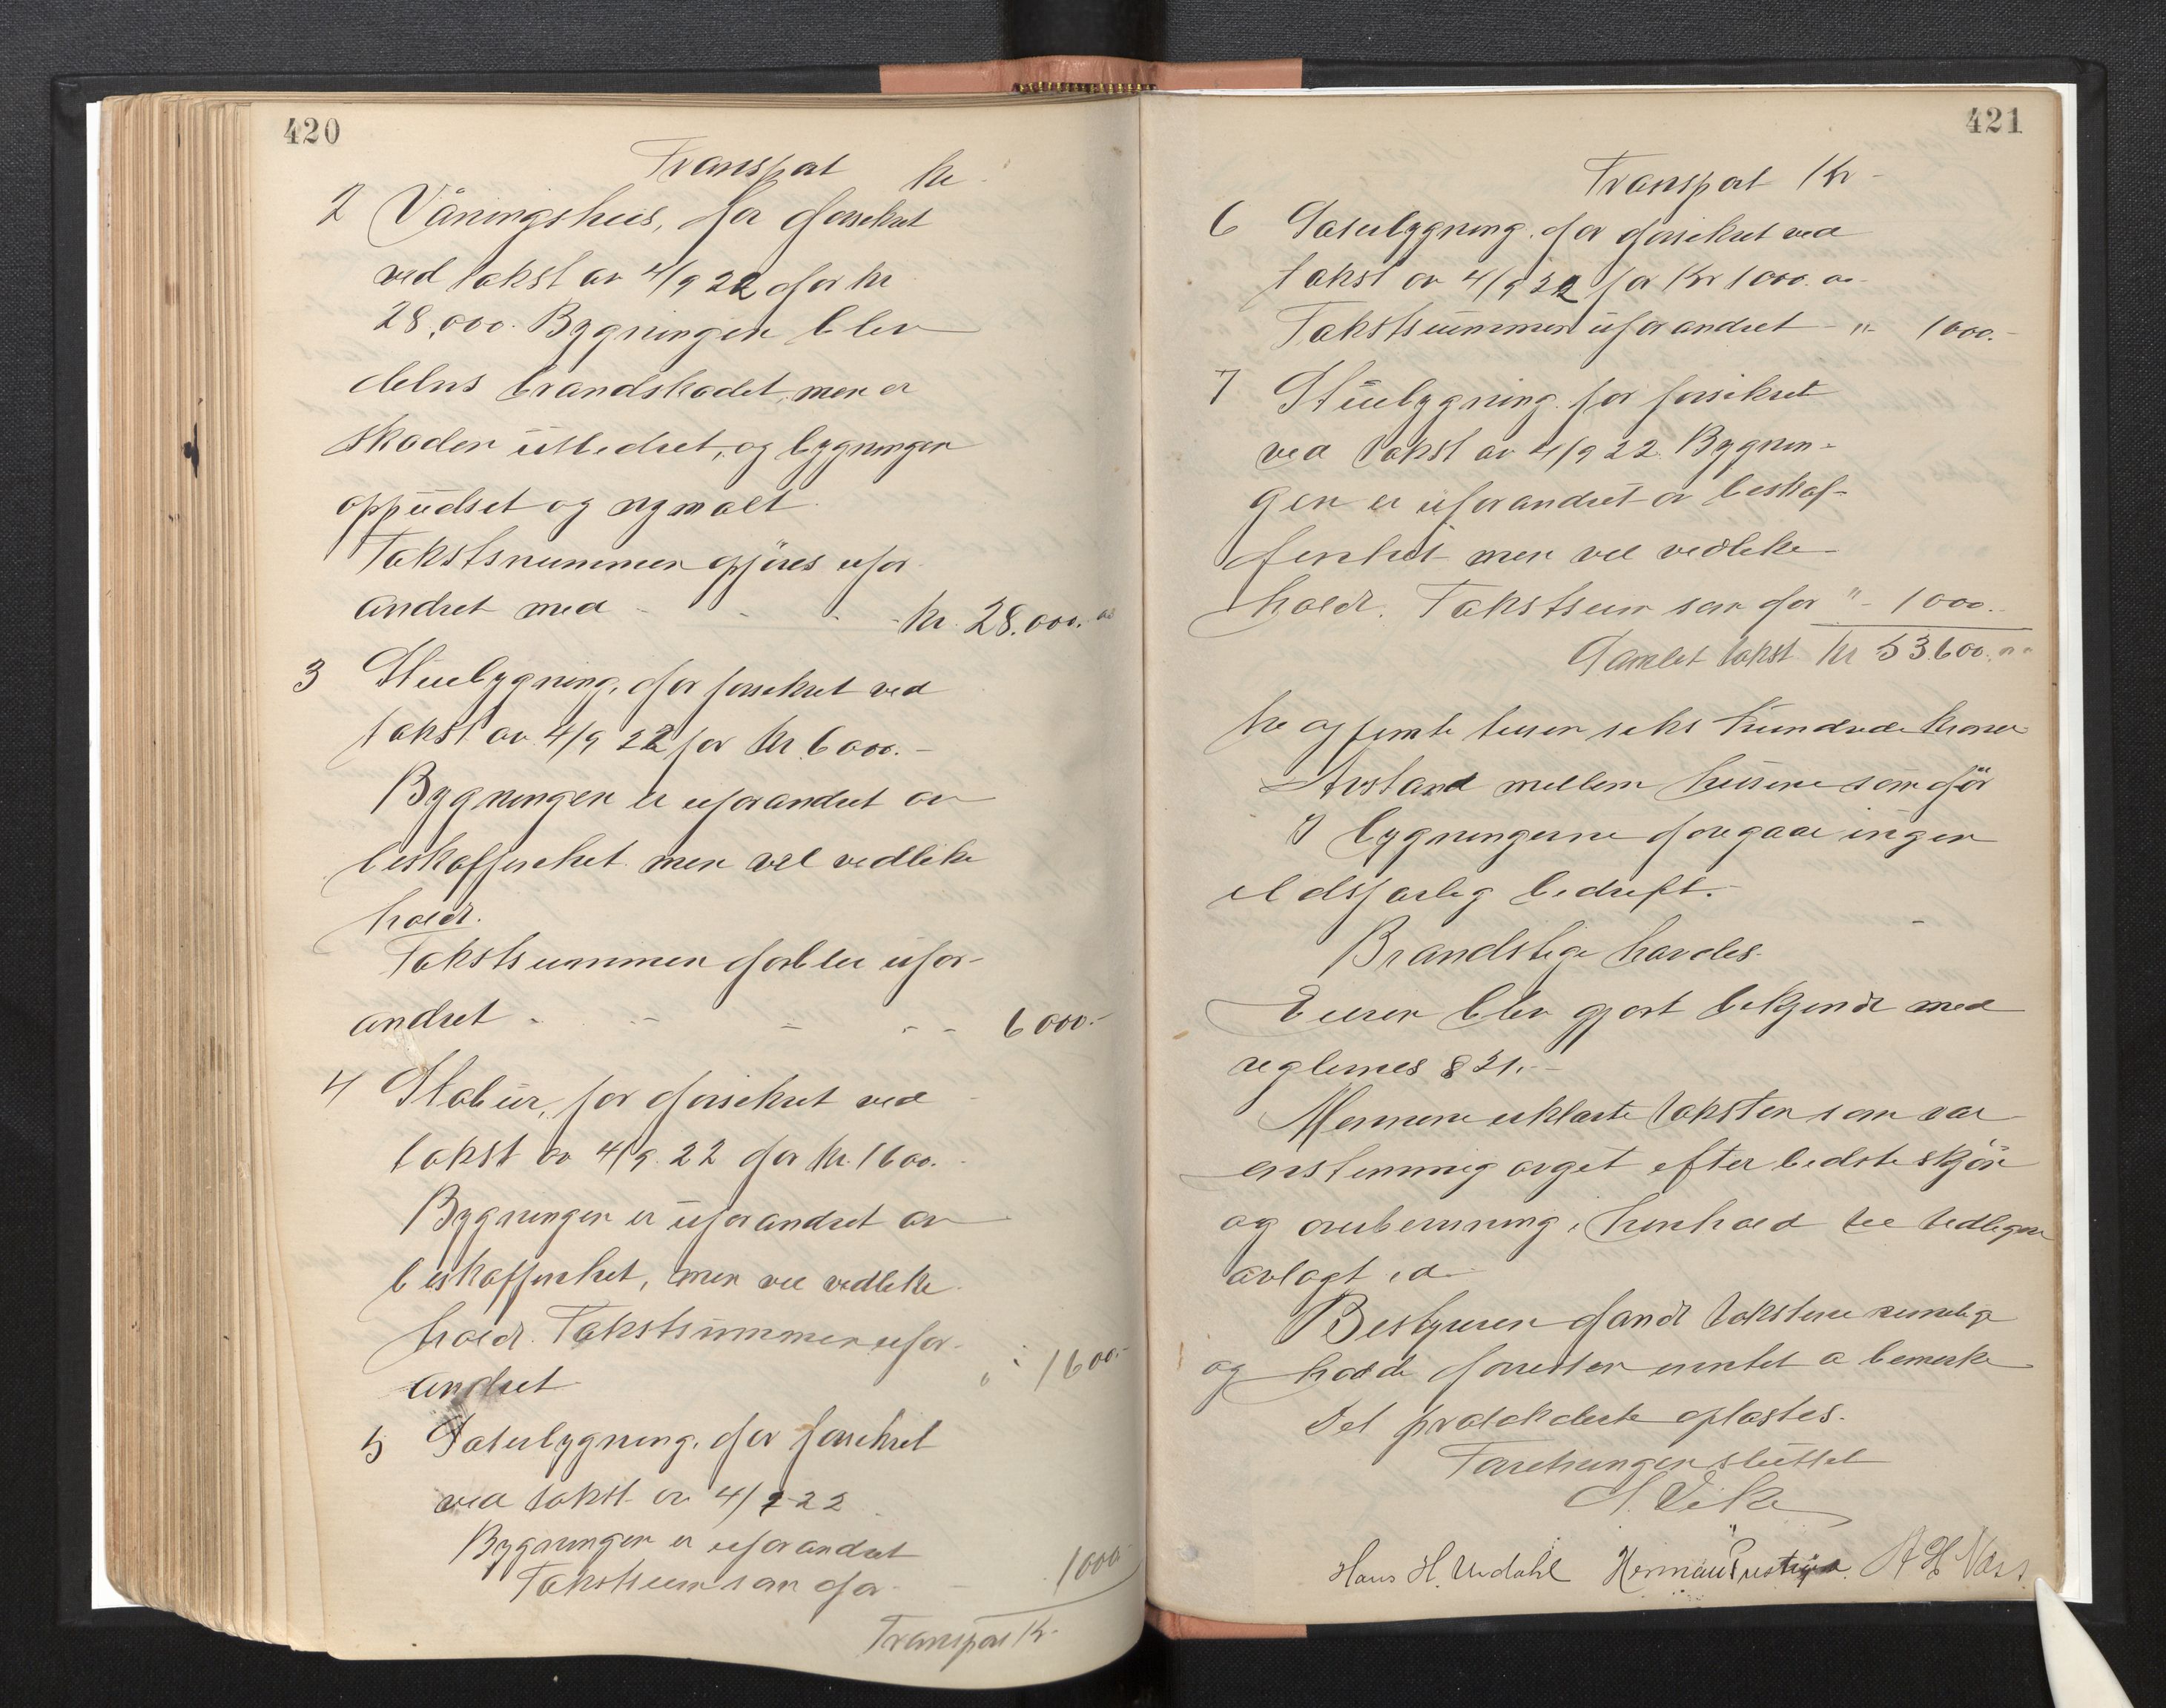 420
Transport kr
2 Våningshus, før forsikret
ved takst av 4/9 22 for kr
28,000. Bygningen blev
delvis brandskadet, men er
skaden utbedret, og bygningen
oppudset og nymalt.
Takstsummen gjöres ufor-
andret med - - - kr. 28.000.00
3 Stuebygning, før forsikret ved
takst av 4/9 22 for kr 6000.-
Bygningen er uforandret av
beskaffenhet men vel vedlike
holdt.
Takstsummen forblir ufor-
andret - - - - - 6000.-
4 Stabur, før forsikret ved
takst av 4/9 22 for kr. 1600.
Bygningen er uforandret av
beskaffenhet, men vel vedlike
holdt. Takstsummen ufor-
andret " - 1600.-
5 Saterbygning, før forsikret
ved takst av 4/9 22
Bygningen er uforandret
Takstsum som før - - 1000-
Transport Kr-
421
Transport Kr-
6 Saterbygning, før forsikret ved
takst av 4/9 22 for Kr 1000.00
Takstsummen uforandret - " - 1000.-
7 Stuebygning før forsikret
ved takst av 4/9 22. Bygnin-
gen er uforandret av beskaf-
fenhet men vel vedlike-
holdt. Takstsum som før " - 1000.-
Samlet takst kr 53.600.00
tre og femti tusen seks hundrede kroner
Avstand mellem husene som för
I bygningerne foregaar ingen
ildsfarlig bedrift.
Brandstige havdes.
Eieren blev gjort bekjendt med
reglernes § 31.-
Mennene erklærte taksten som var
enstemmig avget efter bedste skjön
og overbevisning, i henhold til tidligere
avlagt ed.
Bestyreren fandt takstene rimelige
og hadde forresten intet a bemerke
Det protokolerte oplæstes.
Forretningen sluttet
Hans H. Urdahl Herman A H Næss